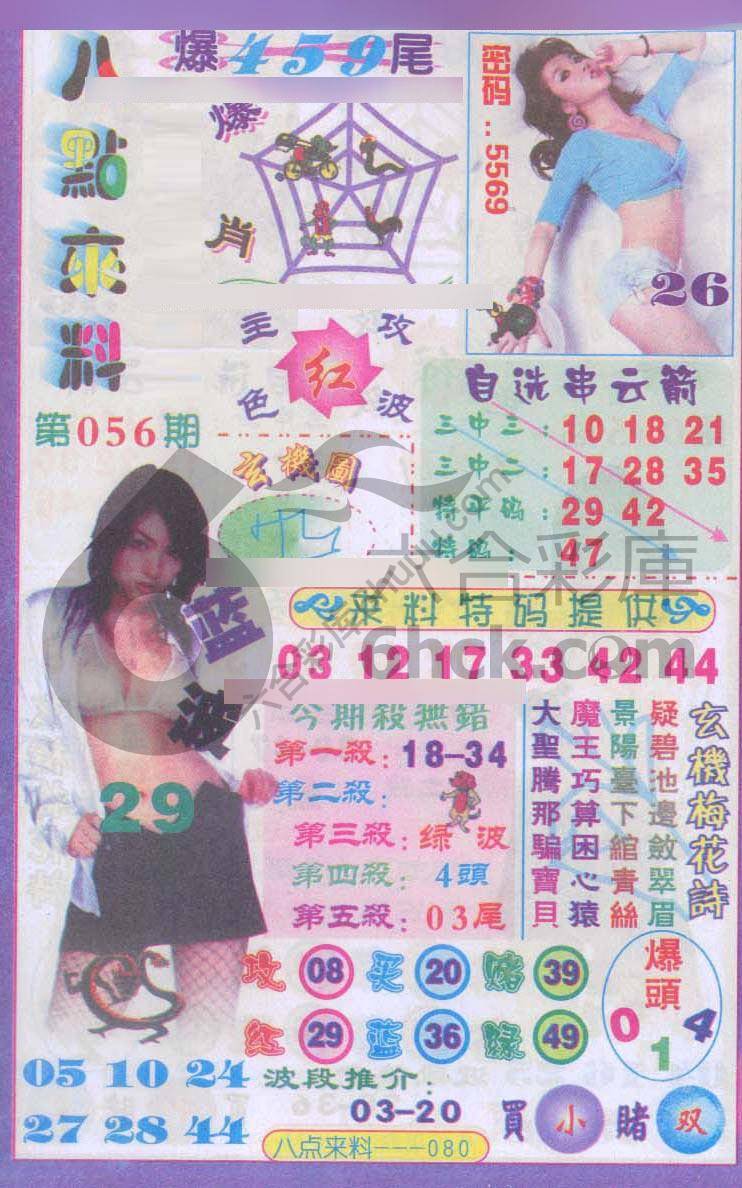 八點來料
爆459尾
爆肖
密码..5569
26
主攻
红
色波
第056期
玄機圖
自选串云箭
三中三：10 18 21
三中二：17 28 35
特平码：29 42
特码：47
六合彩庫
6hck.com
来料特码提供
03 12 17 33 42 44
蓝波
29
今期殺無錯
第一殺：18-34
第二殺：
第三殺：绿波
第四殺：4頭
第五殺：03尾
玄機梅花詩
疑碧池邊斂翠眉
景陽臺下綰青絲
魔王巧算困心猿
大聖騰那騙寶貝
攻 08 买 20 赌 39
红 29 蓝 36 绿 49
爆頭
0 1 4
05 10 24
27 28 44
波段推介：
03-20
買小賭双
八点来料---080